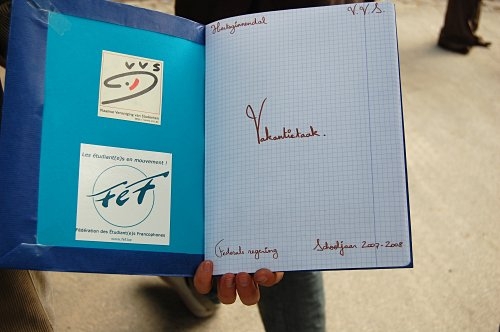 VVS
Vlaamse Vereniging van Studenten
Les étudiant(e)s en mouvement !
FéF
Fédération des Étudiant(e)s Francophones
www.fef.be
Hertoginnendal
V.V.S.
Vakantietaak.
Federale regering
Schooljaar 2007-2008